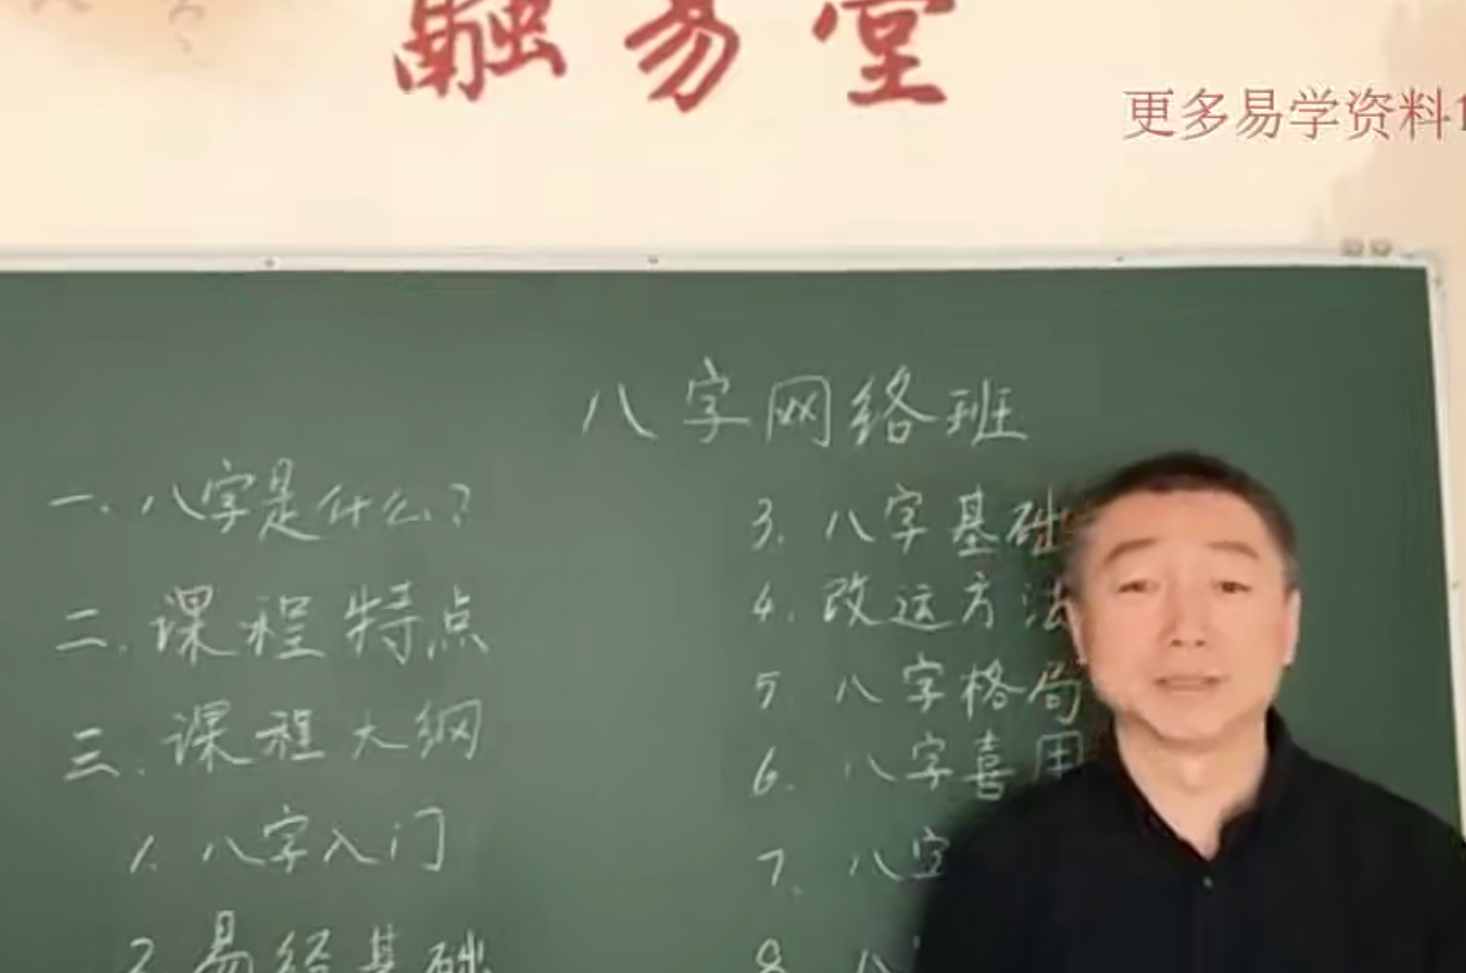 融易堂
更多易学资料1
八字网络班
一.八字是什么?
二.课程特点
三.课程大纲
1.八字入门
2.易经基础
3.八字基础
4.改运方法
5.八字格局
6.八字喜用
7.八字
8.八